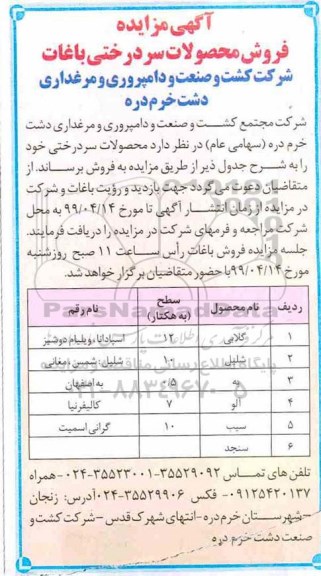 آگهی مزایده
فروش محصولات سردرختی باغات
شرکت کشت و صنعت و دامپروری و مرغداری
دشت خرم دره
شرکت مجتمع کشت و صنعت و دامپروری و مرغداری دشت
خرم دره (سهامی عام) در نظر دارد محصولات سردرختی خود
را به شرح جدول ذیر از طریق مزایده به فروش برساند. از
متقاضیان دعوت می گردد جهت بازدید و رؤیت باغات و شرکت
در مزایده از زمان انتشار آگهی تا مورخ ۹۹/۰۴/۱۴ به محل
شرکت مراجعه و فرمهای شرکت در مزایده را دریافت فرمایند.
جلسه مزایده فروش باغات رأس ساعت ۱۱ صبح روز شنبه
مورخ ۹۹/۰۴/۱۴ با حضور متقاضیان برگزار خواهد شد.
ردیف نام محصول سطح (به هکتار) نام رقم
۱ گلابی ۱۲ اسپادانا، ویلیام دوشیز
۲ شلیل ۱۰ شلیل: شمس، مغانی
۳ به ۰.۵ به اصفهان
۴ آلو ۷ کالیفرنیا
۵ سیب ۱۰ گرانی اسمیت
۶ سنجد
تلفن های تماس ۳۵۵۲۹۰۹۲-۳۵۵۲۳۰۰۱-۰۲۴ -همراه
۰۹۱۲۵۴۲۰۱۳۷- فکس ۳۵۵۲۹۹۰۶-۰۲۴ آدرس: زنجان
-شهرستان خرم دره -انتهای شهرک قدس -شرکت کشت و
صنعت دشت خرم دره